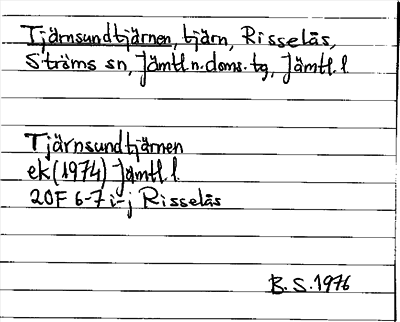 Tjärnsundtjärnen, tjärn, Risselås,
Ströms sn, Jämtl.n.doms.tg, Jämtl. l.
Tjärnsundtjärnen
ek (1974) Jämtl. l.
20F 6-7 i-j Risselås
B. S. 1976